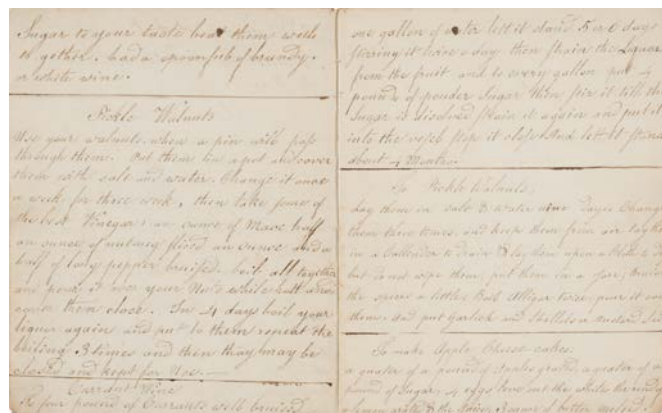 Sugar to your taste beat them well
to gether. hada spoonfull of brandy.
or white wine.
Pickle Walnuts
Use your walnuts when a pin will pass
through them. Put them in a pot and cover
them with salt and water. Change it once
a week for three week, then take some of
the best Vinegar an ounce of Mace half
an ounce of nutmeg sliced an ounce and a
half of long pepper bruised. boil all together
and pour it over your Nuts while hott and
cover them close. In 4 days boil your
liquor again and put to them repeat the
boiling 3 times and then thay may be
closed and kept for Use.
Currant Wine
To four pound of Currants well bruised
one gallon of water lett it stand 5 or 6 days
stirring it twice a day then strain the Liquor
from the fruit and to every gallon put 4
pounds of powder Sugar then stir it till the
Sugar is disolved strain it again and put it
into the vessel stop it close and lett it stand
about 4 Months
To Pickle Walnuts
Lay them in salt & water nine dayes Change
them three times, and keep them from air lay them
in a Cullender to drain & lay them upon a
but do not wipe them put them in a jarr,
the spices a little Boil Alligar twice pour it
them, and put garlick and Shellots a
To make Apple Cheese cakes
a quater of a pound of apples grated a quater of a
pound of Sugar, 4 eggs leve out the whites